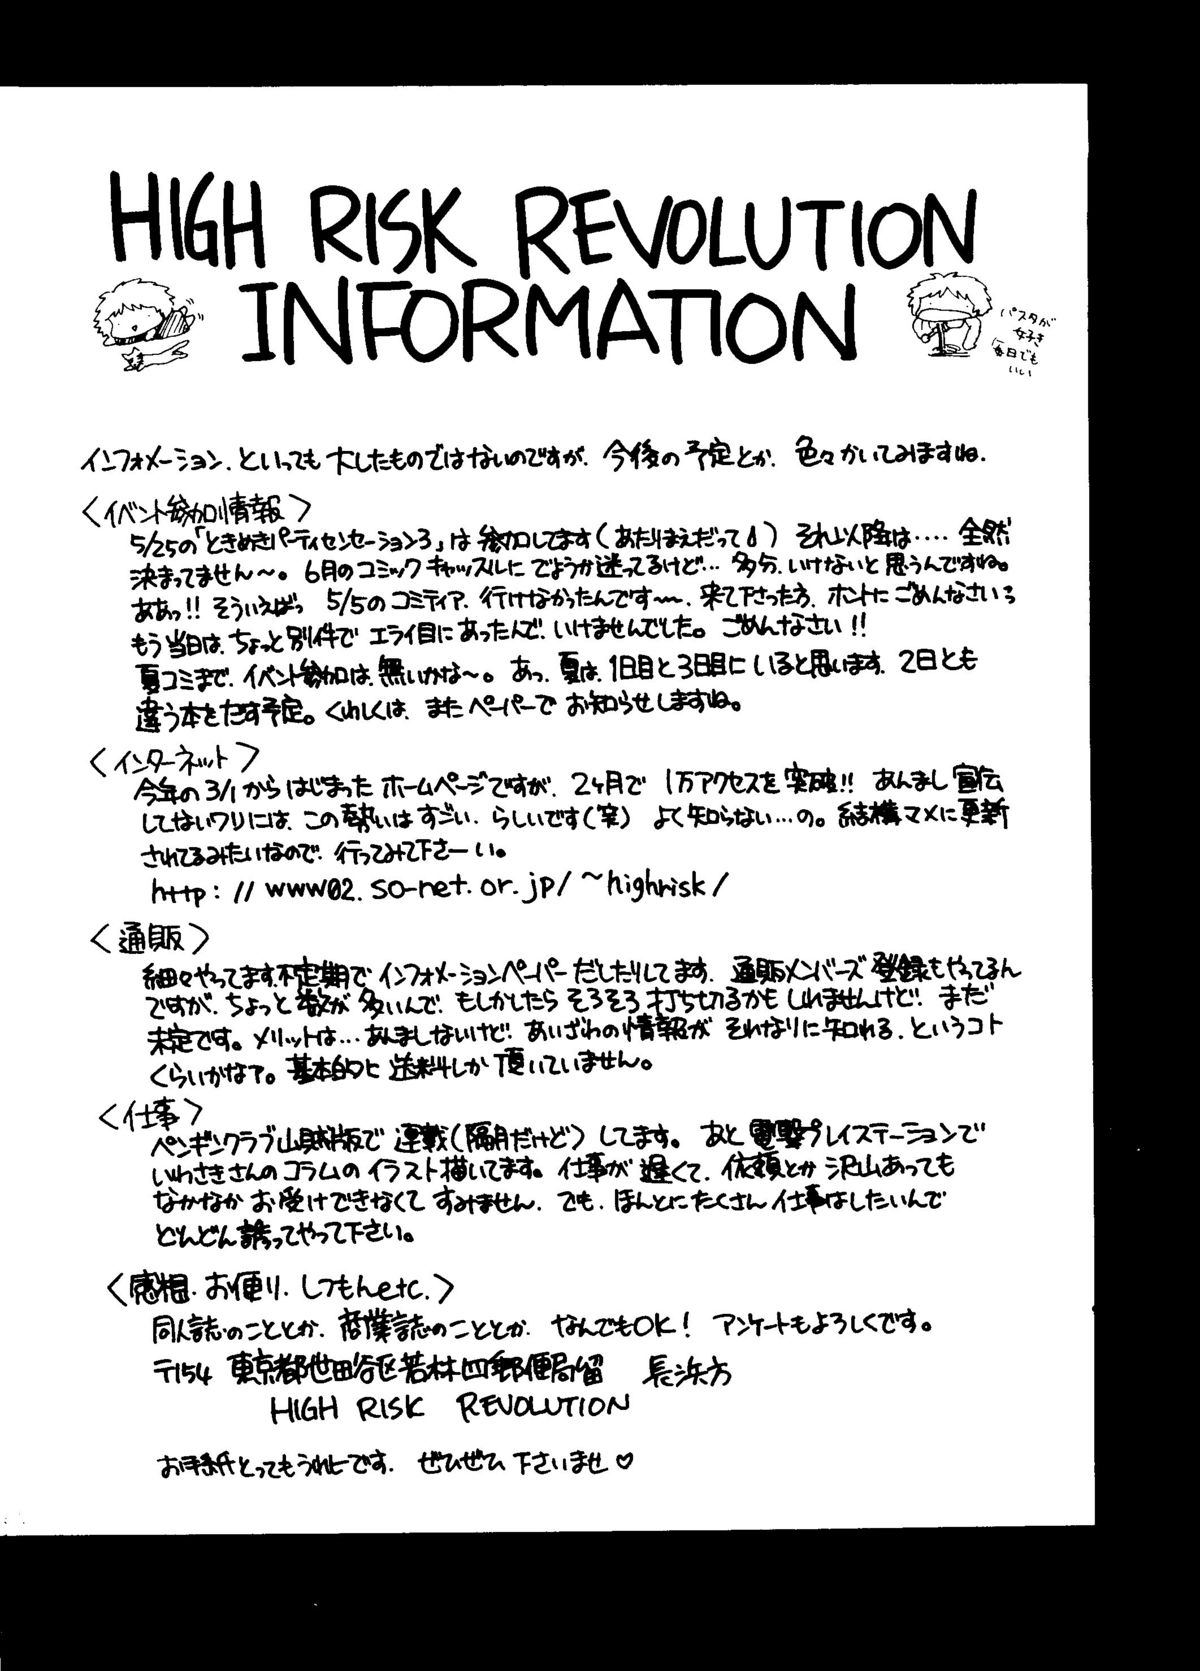 HIGH RISK REVOLUTION
INFORMATION
パスタが
好き
毎日でも
いい
インフォメーション、といっても 大したものではないのですが、今後の予定とか、色々かいてみますね.
〈イベント参加情報〉
5/25の「ときめきパーティセンセーション3」は 参加してます(あたりまえだって) それ以降は‥‥ 全然
決まってません〜。6月のコミックキャッスルに でようか迷ってるけど… 多分、いけないと思うんですね。
ああっ!! そういえばっ 5/5のコミティア、行けなかったんです〜〜、来て下さった方、ホントに ごめんなさいっ
もう当日は、ちょっと別件で エライ目にあったんで、いけませんでした。ごめんなさい!!
夏コミまで、イベント参加は、無いかな〜。あっ、夏は、1日目と3日目にいると思います、2日とも
違う本をだす予定。くわしくは、また ペーパーで お知らせしますね。
〈インターネット〉
今年の3/1から はじまった ホームページですが、2ヶ月で 1万アクセスを 突破!! あんまし 宣伝
してないワリには、この勢いは すごい、らしいです(笑) よく知らない…の。結構マメに更新
されてるみたいなので、行ってみて下さーい。
http://www02.so-net.or.jp/~highrisk/
〈通販〉
細々やってます.不定期で インフォメーションペーパー だしたりしてます、通販メンバーズ 登録もやってるん
ですが、ちょっと 数が 多いんで、もしかしたら そろそろ 打ち切るかも しれませんけど! まだ
未定です。メリットは… あんましないけど、あいざわの情報が それなりに知れる、というコト
くらいかなァ。基本的に 送料しか 頂いていません。
〈仕事〉
ペンギンクラブ山賊版で 連載(隔月だけど)してます。あと 電撃プレイステーションで
いわさきさんのコラムのイラスト描いてます。仕事が 遅くて、依頼とか 沢山あっても
なかなか お受けできなくて すみません、でも、ほんとにたくさん 仕事はしたいんで
どんどん 誘ってやって下さい。
〈感想・お便り・しつもんetc.〉
同人誌のこととか、商業誌のこととか、なんでもOK! アンケートもよろしくです。
〒154 東京都世田谷区若林四郵便局留 長浜方
HIGH RISK REVOLUTION
お手紙とってもうれしーです、ぜひぜひ 下さいませ♡